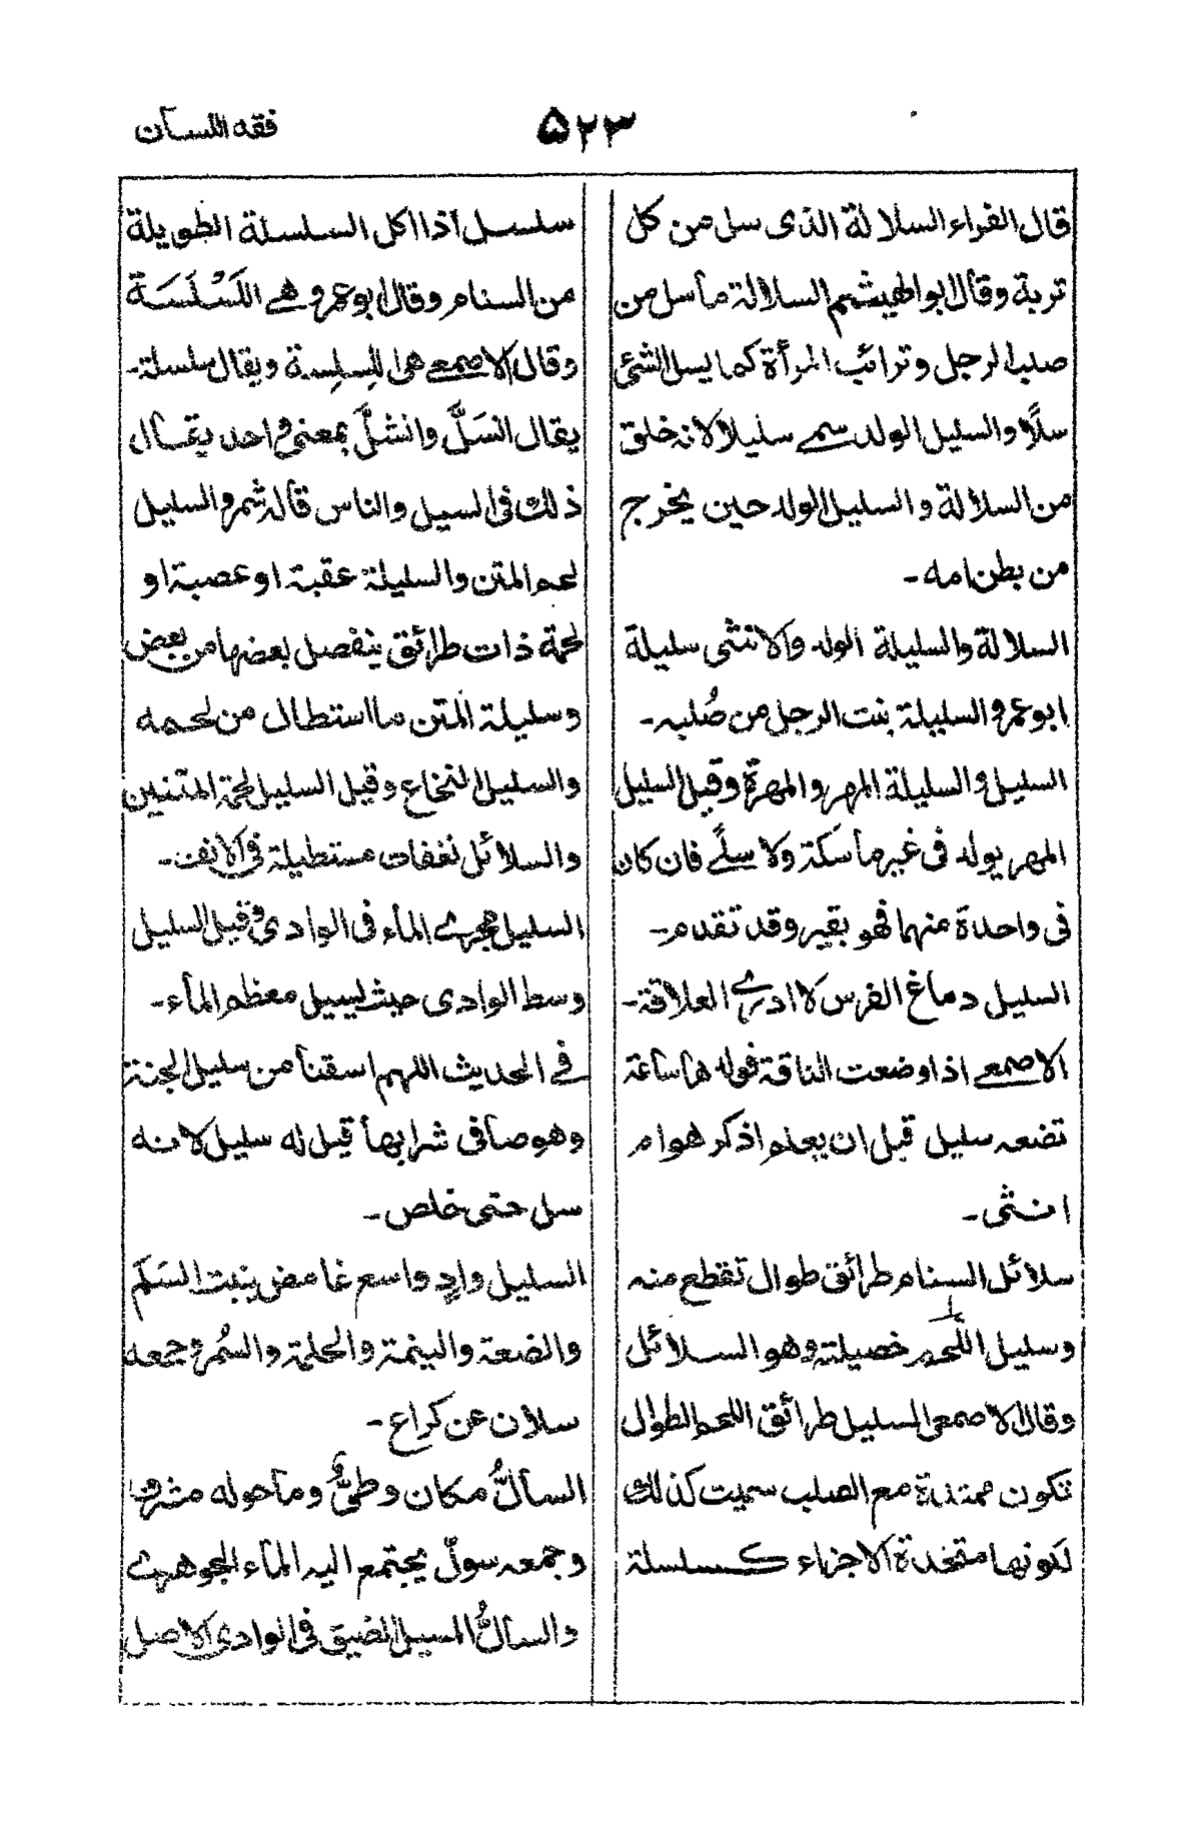 فقه اللسان
۵۲۳
قال الفراء السلالة الذى سل من كل
تربة وقال ابوالهيشم السلالة ما سل من
صلب الرجل وترائب المرأة كما يسل الشئ
سلًّا والسليل الولد سمے سليلا لانه خلق
من السلالة والسليل الولد حين يخرج
من بطن امه ـ
السلالة والسليلة الولد والانثى سليلة
ابوعمرو السليلة بنت الرجل من صُلبه ـ
السليل والسليلة المهر والمهرة وقيل السليل
المهر يولد فى غير ماسكة ولا سلًے فان كان
فى واحدة منهما فهو بقير وقد تقدم ـ
السليل دماغ الفرس لا ادرے العلاقة ـ
الاصمعے اذا وضعت الناقة فولدها ساعة
تضعه سليل قبل ان يعلم اذكر هو ام
انثى ـ
سلائل السنام طرائق طوال تقطع منه
وسليل اللحم خصيلته وهو السلائل
وقال الاصمعى السليل طرائق اللحم الطوال
تكون ممتدة مع الصلب سميت كذلك
لكونها متخدة الاجزاء كسلسلة
سلسل اذا اكل السلسلة الطويلة
من السنام وقال ابوعمرو هے اللَسْلَسَة
وقال الاصمعے هى اللِسلِسة ويقال سلسلة ـ
يقال انسَلَّ وانشلَّ بمعنى واحد يقال
ذلك فى السيل والناس قاله شمر والسليل
لحم المتن والسليلة عقبة او عصبة او
لحمة ذات طرائق ينفصل بعضها من بعض
وسليلة المتن ما استطال من لحمه
والسليل النخاع وقيل السليل لحمة المتنين
والسلائل نغفات مستطيلة فى الانف ـ
السليل مجرے الماء فى الوادى وقيل السليل
وسط الوادى حيث يسيل معظم الماء ـ
فے الحديث اللهم اسقنا من سليل الجنة
وهو صافى شرابها قيل له سليل لانه
سل حتى خلص ـ
السليل وادٍ واسع غامض ينبت السَلَم
والضعة والينمة والحلمة والسُمر وجمعه
سلان عن كراع ـ
السالُّ مكان وطئٌ وما حوله مشرف
وجمعه سولّ يجتمع اليه الماء الجوهرے
والسالُّ المسيل الضيق فى الوادى الاصل